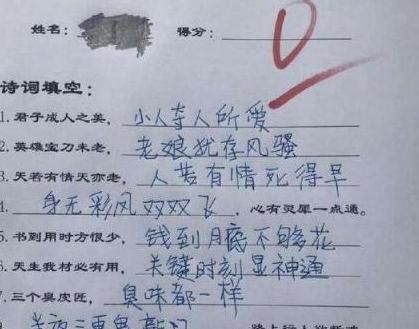 姓名： 得分： 0
诗词填空：
1. 君子成人之美，小人夺人所爱
2. 英雄宝刀未老，老娘犹存风骚
3. 天若有情天亦老，人若有情死得早
4. 身无彩风双双飞，心有灵犀一点通。
5. 书到用时方恨少，钱到月底不够花
6. 天生我材必有用，关键时刻显神通
7. 三个臭皮匠，臭味都一样